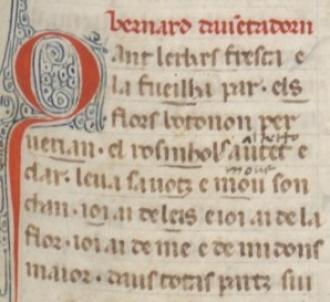 bernard du uẽtadorn
Qant lerbrs fresca e
la fueilha par · els
flors botonon per
uerian · el rosinhols autet e
clar · leua sa uotz e mou son
chan · ioi ai de leis e ioi ai de la
flor · ioi ai de me e de midons
maior · daus totas partz sui